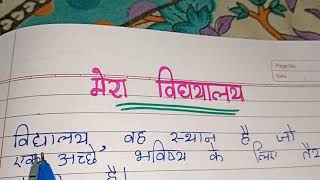 Page No.
Date
मेरा विद्यालय
विद्यालय वह स्थान है जो
एक अच्छे भविष्य के लिए तै
है।